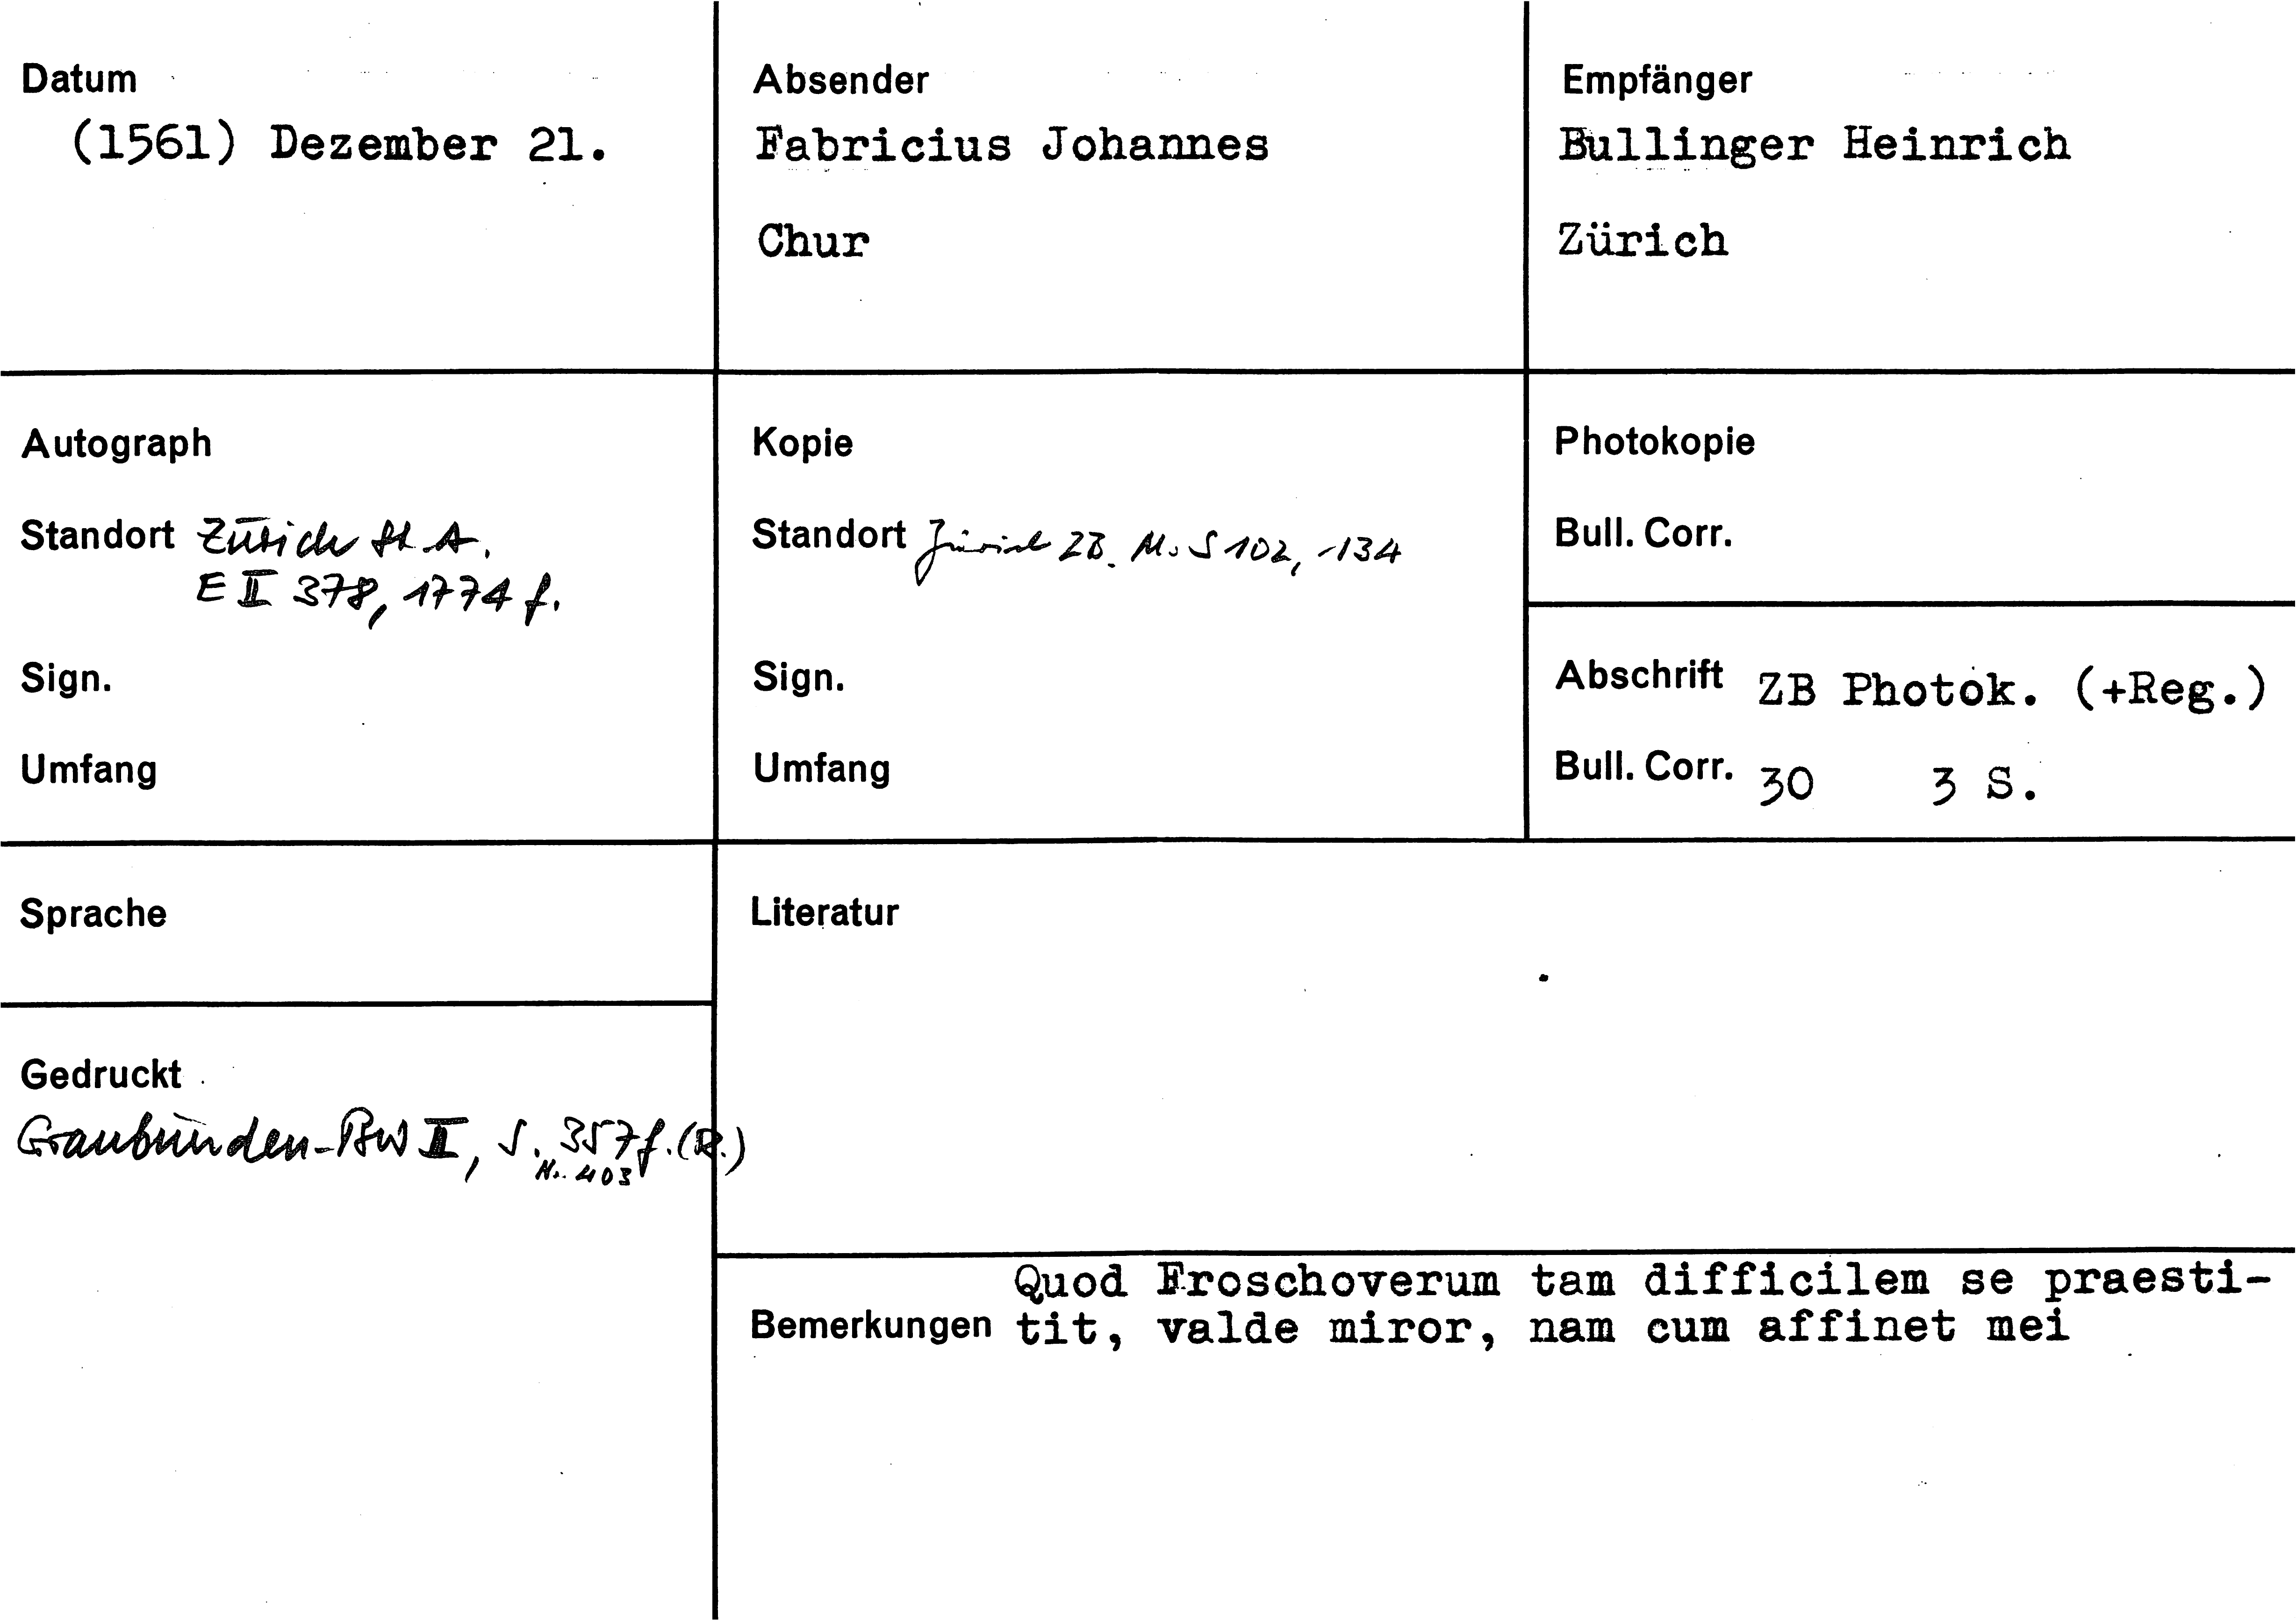 Datum
(1561) Dezember 21.
Absender
Fabricius Johannes
Chur
Empfänger
Bullinger Heinrich
Zürich
Autograph
Standort Zürich St.A.
E II 378, 1774 f.
Sign.
Umfang
Kopie
Standort Zürich ZB. Ms S 102, 134
Sign.
Umfang
Photokopie
Bull. Corr.
Abschrift ZB Photok. (+Reg.)
Bull. Corr. 30 3 S.
Sprache
Literatur
Gedruckt
Graubünden-BW II, S. 357 f. (R.)
Nr. 403
Quod Froschoverum tam difficilem se praesti-
Bemerkungen tit, valde miror, nam cum affinet mei